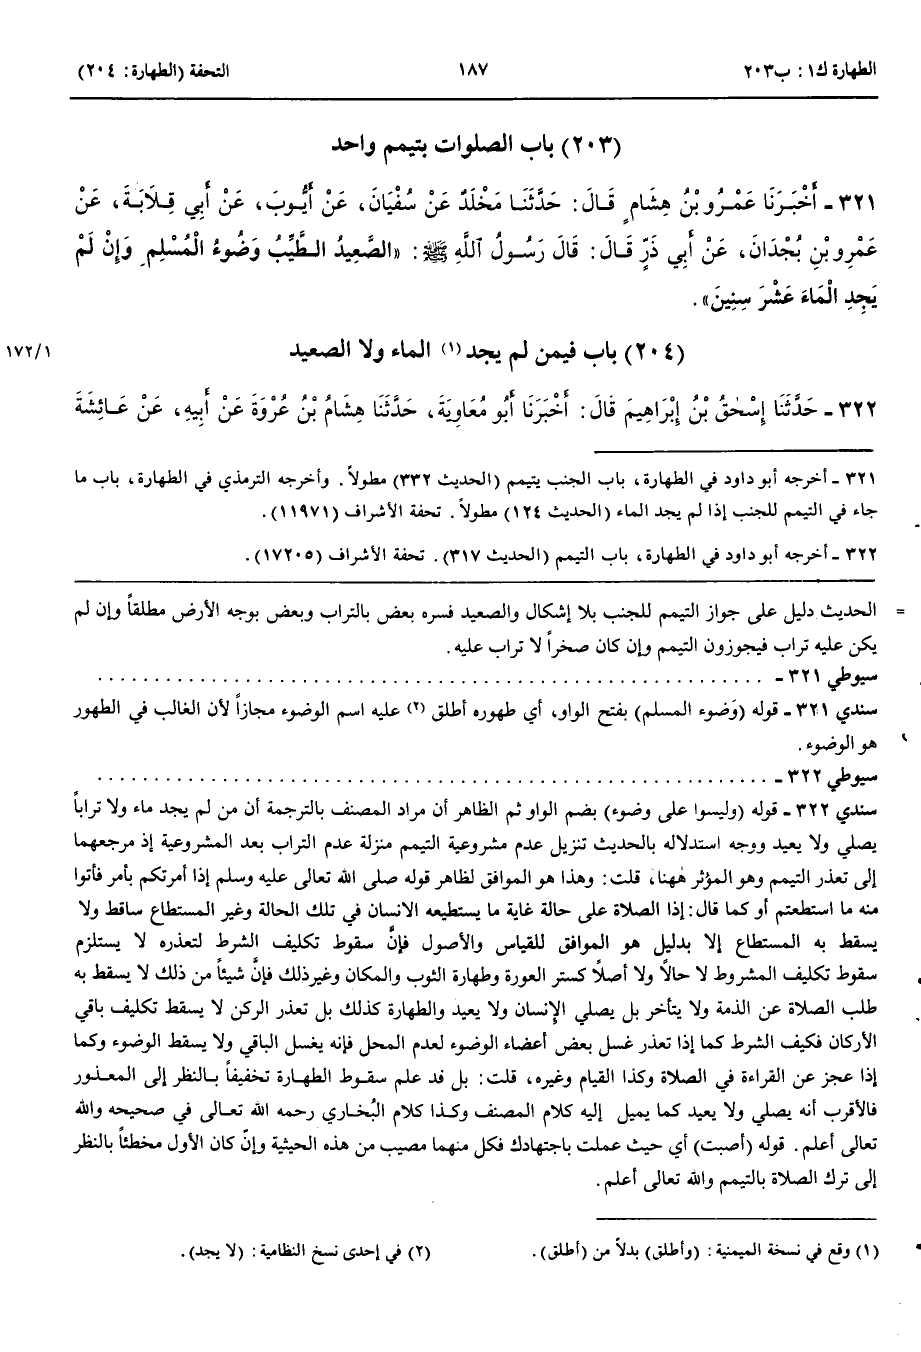 الطهارة ك١: ب٢٠٣ ١٨٧ التحفة (الطهارة: ٢٠٤)
(٢٠٣) باب الصلوات بتيمم واحد
٣٢١ ـ أَخْبَرَنَا عَمْرُو بْنُ هِشَامٍ قَالَ: حَدَّثَنَا مَخْلَدٌ عَنْ سُفْيَانَ، عَنْ أَيُّوبَ، عَنْ أَبِي قِلَابَةَ، عَنْ
عَمْرِو بْنِ بُجْدَانَ، عَنْ أَبِي ذَرٍّ قَالَ: قَالَ رَسُولُ اللَّهِ ﷺ: «الصَّعِيدُ الطَّيِّبُ وَضُوءُ الْمُسْلِمِ وَإِنْ لَمْ
يَجِدِ الْمَاءَ عَشْرَ سِنِينَ».
(٢٠٤) باب فيمن لم يجد (١) الماء ولا الصعيد
١٧٢/١
٣٢٢ ـ حَدَّثَنَا إِسْحٰقُ بْنُ إِبْرَاهِيمَ قَالَ: أَخْبَرَنَا أَبُو مُعَاوِيَةَ، حَدَّثَنَا هِشَامُ بْنُ عُرْوَةَ عَنْ أَبِيهِ، عَنْ عَائِشَةَ
٣٢١ ـ أخرجه أبو داود في الطهارة، باب الجنب يتيمم (الحديث ٣٣٢) مطولاً. وأخرجه الترمذي في الطهارة، باب ما
جاء في التيمم للجنب إذا لم يجد الماء (الحديث ١٢٤) مطولاً. تحفة الأشراف (١١٩٧١).
٣٢٢ ـ أخرجه أبو داود في الطهارة، باب التيمم (الحديث ٣١٧). تحفة الأشراف (١٧٢٠٥).
= الحديث دليل على جواز التيمم للجنب بلا إشكال والصعيد فسره بعض بالتراب وبعض بوجه الأرض مطلقاً وإن لم
يكن عليه تراب فيجوزون التيمم وإن كان صخراً لا تراب عليه.
سيوطي ٣٢١ ـ . . . . . . . . . . . . . . . . . . . . . . . . . . . . . .
سندي ٣٢١ ـ قوله (وَضوء المسلم) بفتح الواو، أي طهوره أطلق (٢) عليه اسم الوضوء مجازاً لأن الغالب في الطهور
هو الوضوء.
سيوطي ٣٢٢ ـ . . . . . . . . . . . . . . . . . . . . . . . . . . . . . .
سندي ٣٢٢ ـ قوله (وليسوا على وضوء) بضم الواو ثم الظاهر أن مراد المصنف بالترجمة أن من لم يجد ماء ولا تراباً
يصلي ولا يعيد ووجه استدلاله بالحديث تنزيل عدم مشروعية التيمم منزلة عدم التراب بعد المشروعية إذ مرجعهما
إلى تعذر التيمم وهو المؤثر ههنا، قلت: وهذا هو الموافق لظاهر قوله صلى الله تعالى عليه وسلم إذا أمرتكم بأمر فأتوا
منه ما استطعتم أو كما قال: إذا الصلاة على حالة غاية ما يستطيعه الانسان في تلك الحالة وغير المستطاع ساقط ولا
يسقط به المستطاع إلا بدليل هو الموافق للقياس والأصول فإنَّ سقوط تكليف الشرط لتعذره لا يستلزم
سقوط تكليف المشروط لا حالاً ولا أصلاً كستر العورة وطهارة الثوب والمكان وغير ذلك فإنَّ شيئاً من ذلك لا يسقط به
طلب الصلاة عن الذمة ولا يتأخر بل يصلي الإنسان ولا يعيد والطهارة كذلك بل تعذر الركن لا يسقط تكليف باقي
الأركان فكيف الشرط كما إذا تعذر غسل بعض أعضاء الوضوء لعدم المحل فإنه يغسل الباقي ولا يسقط الوضوء وكما
إذا عجز عن القراءة في الصلاة وكذا القيام وغيره، قلت: بل قد علم سقوط الطهارة تخفيفاً بالنظر إلى المعذور
فالأقرب أنه يصلي ولا يعيد كما يميل إليه كلام المصنف وكذا كلام البُخاري رحمه الله تعالى في صحيحه والله
تعالى أعلم. قوله (أصبت) أي حيث عملت باجتهادك فكل منهما مصيب من هذه الحيثية وإنّ كان الأول مخطئاً بالنظر
إلى ترك الصلاة بالتيمم والله تعالى أعلم.
(١) وقع في نسخة الميمنية: (وأطلق) بدلاً من (أطلق). (٢) في إحدى نسخ النظامية: (لا يجد).